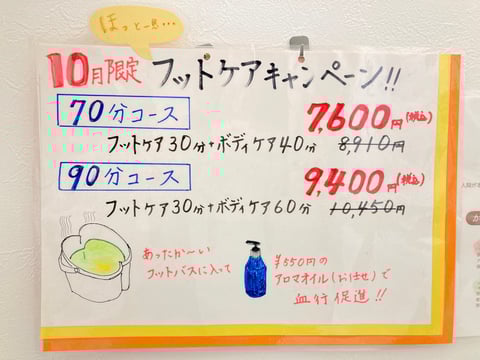 ほっと一息…
10月限定 フットケアキャンペーン!!
70分コース 7,600円(税込)
フットケア30分+ボディケア40分 8,910円
90分コース 9,400円(税込)
フットケア30分+ボディケア60分 10,450円
あったか〜い
フットバスに入って
¥550円の
アロマオイル(お任せ)で
血行促進!!